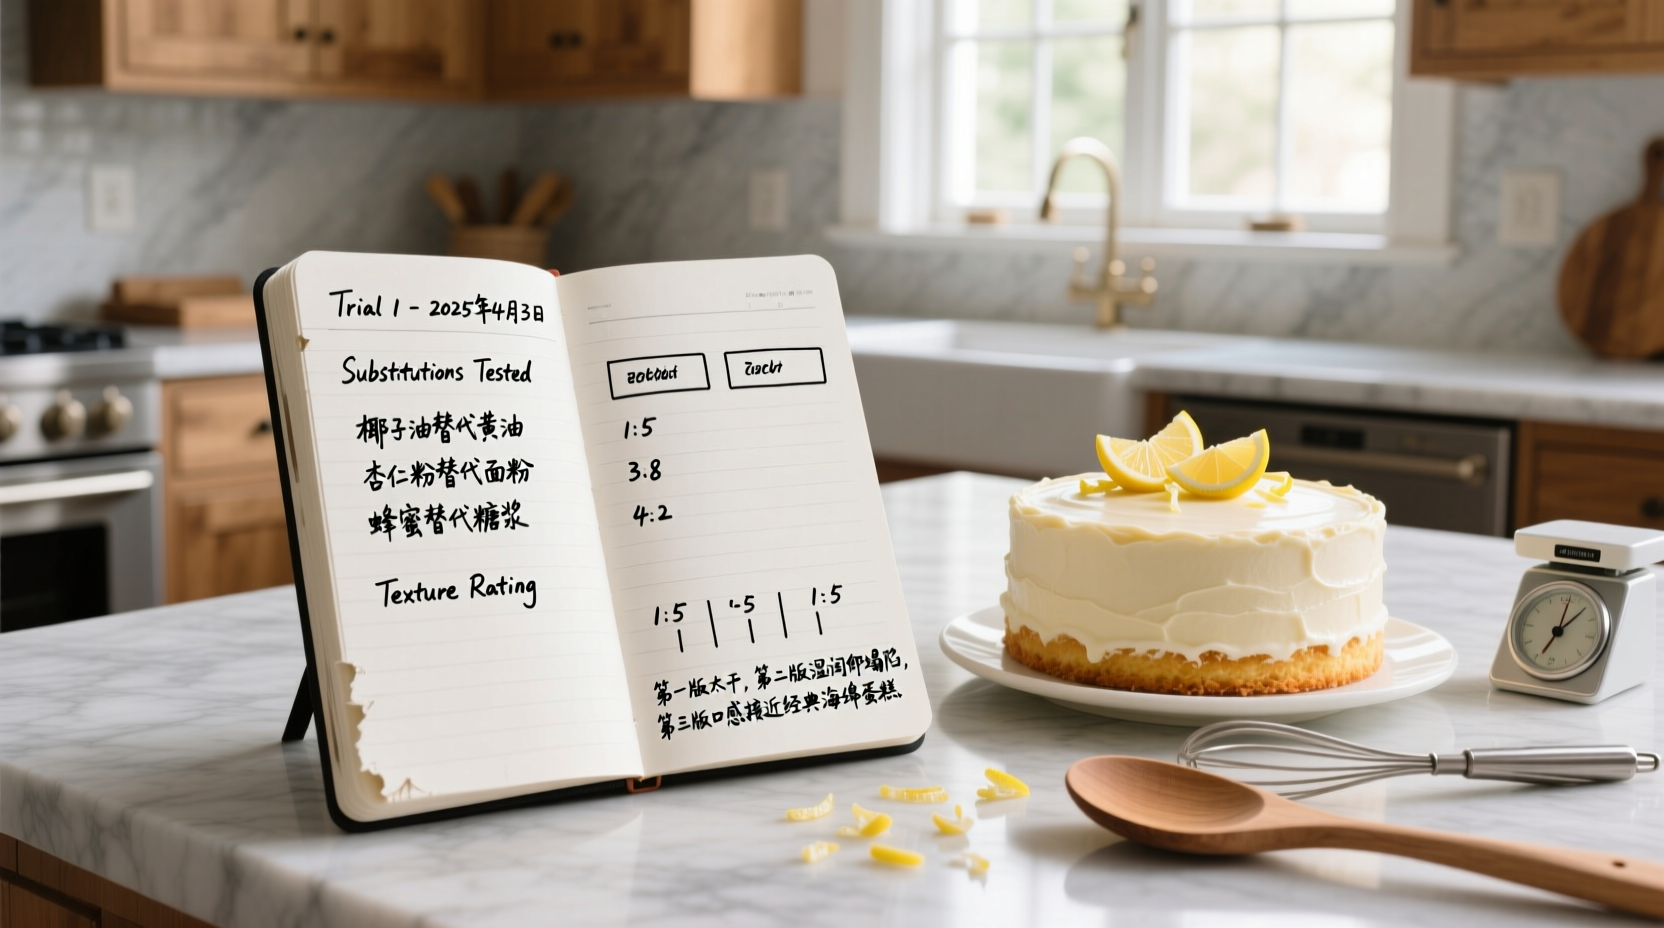 Trial 1 - 2025年4月3日
Substitutions Tested
椰子油替代黄油
杏仁粉替代面粉
蜂蜜替代糖浆
Texture Rating
1:5
3:8
4:2
1:5 -5 1:5
第一版太干，第二版湿润但塌陷，
第三版口感接近经典海绵蛋糕。